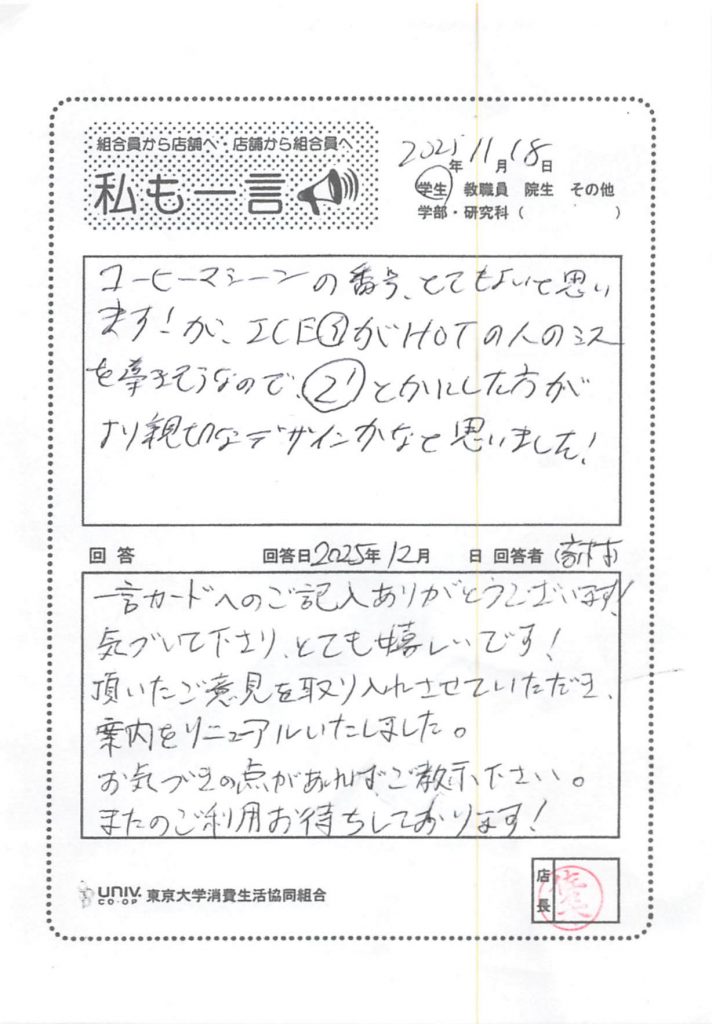 組合員から店舗へ・店舗から組合員へ
私も一言
2025年11月18日
学生 教職員 院生 その他
学部・研究科( )
コーヒーマシーンの番号、とてもよいと思い
ます!が、ICE①がHOTの人のミス
を導きそうなので、②'とかにした方が
より親切なデザインかなと思いました!
回答 回答日2025年12月 日 回答者
一言カードへのご記入ありがとうございます!
気づいて下さり、とても嬉しいです!
頂いたご意見を取り入れさせていただき、
案内をリニューアルいたしました。
お気づきの点があればご教示下さい。
またのご利用お待ちしております!
UNIV.
CO・OP 東京大学消費生活協同組合
店長